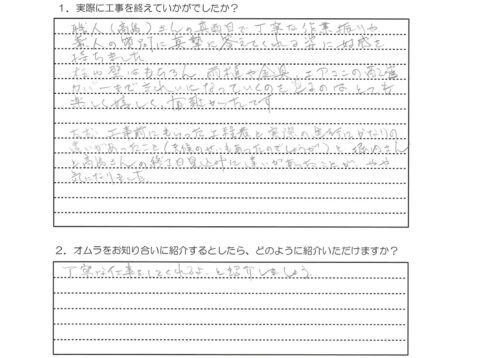 1. 実際に工事を終えていかがでしたか？
職人（高島）さんの真面目で、丁寧な作業振りや
素人の質問に真摯に答えてくれる姿に好感を
持ちました
はもちろん 雨樋や金具、エアコンの配管
カバーまできれいになっていくのを見るのはとても
楽しく嬉しく、有難かったです
ただ、工事前にもらった工程表と実際の
違いがあったこと（天候のせいもあったのでしょうが）と、さん
と高島さんの終了日見込みに違いがあったことが、やや
気になりました
2. オムラをお知り合いに紹介するとしたら、どのように紹介いただけますか？
丁寧な仕事をしてくれるよ、と紹介しましょう。